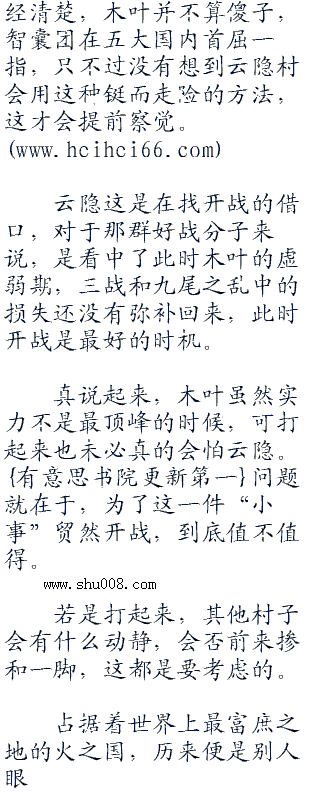 经清楚，木叶并不算傻子，
智囊团在五大国内首屈一
指，只不过没有想到云隐村
会用这种铤而走险的方法，
这才会提前察觉。
(www.hcihci66.com)
云隐这是在找开战的借
口，对于那群好战分子来
说，是看中了此时木叶的虚
弱期，三战和九尾之乱中的
损失还没有弥补回来，此时
开战是最好的时机。
真说起来，木叶虽然实
力不是最顶峰的时候，可打
起来也未必真的会怕云隐。
{有意思书院更新第一}问题
就在于，为了这一件“小
事”贸然开战，到底值不值
得。
www.shu008.com
若是打起来，其他村子
会有什么动静，会否前来掺
和一脚，这都是要考虑的。
占据着世界上最富庶之
地的火之国，历来便是别人
眼